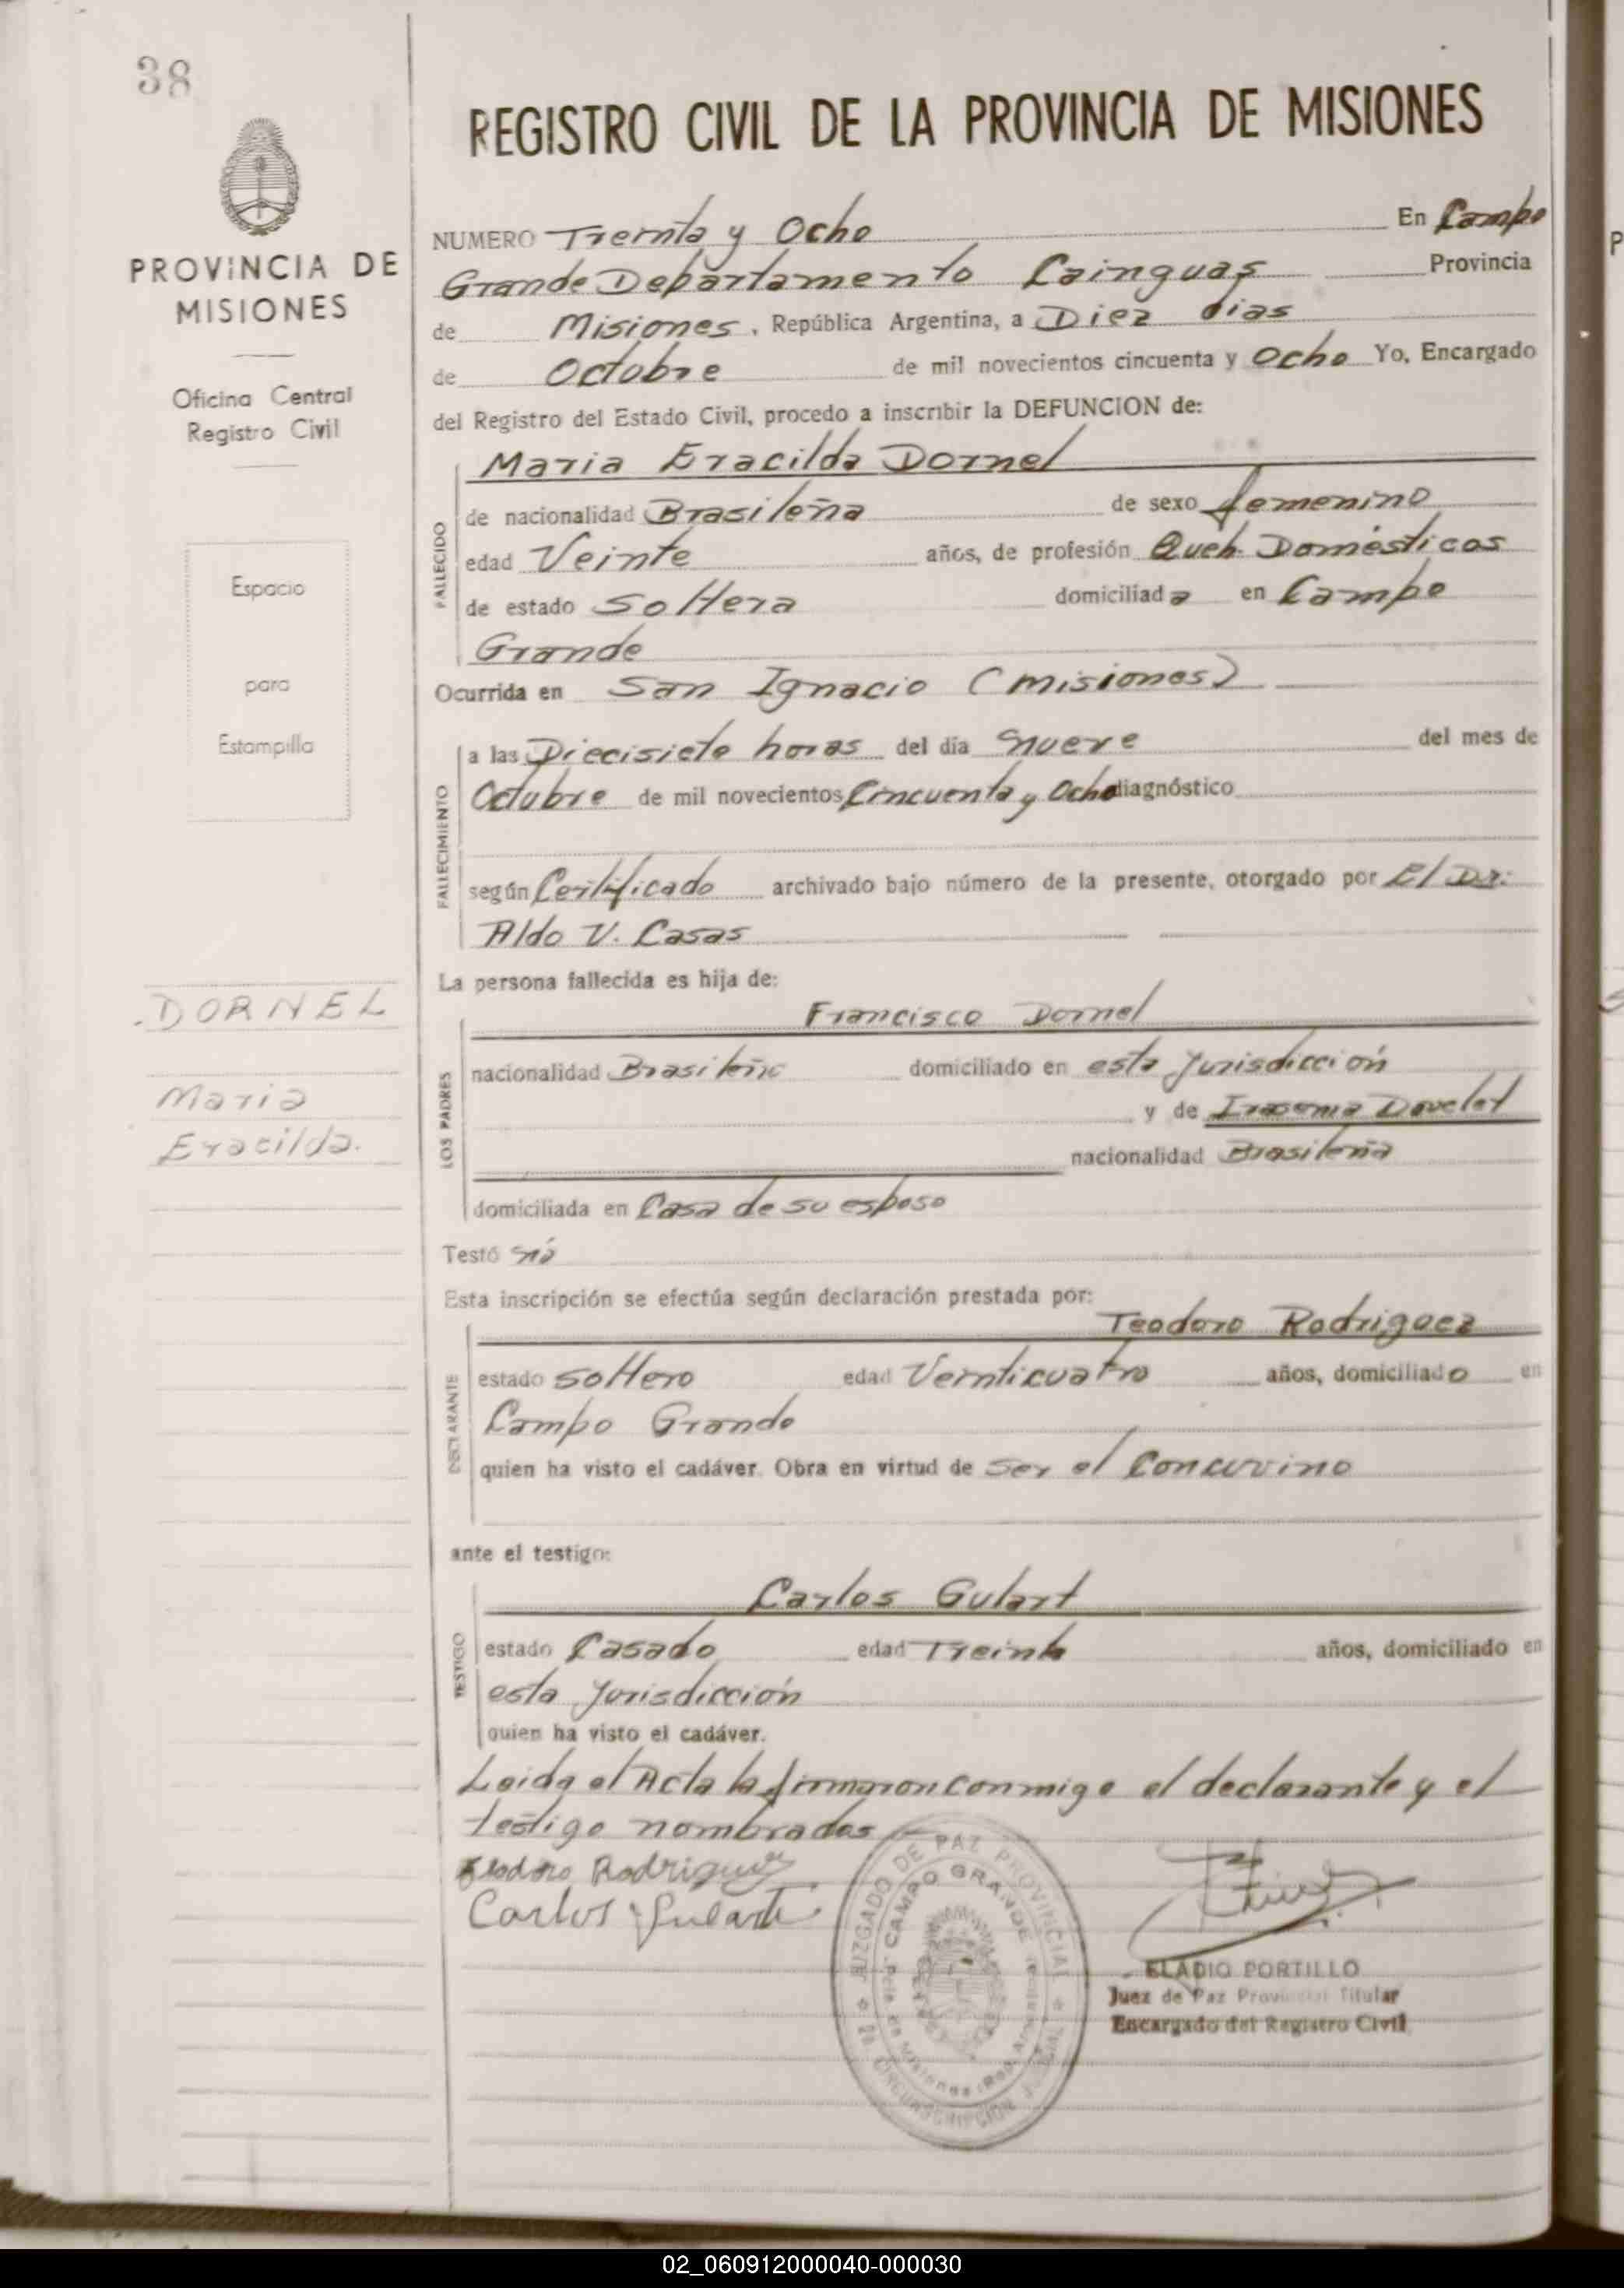 38
REGISTRO CIVIL DE LA PROVINCIA DE MISIONES
PROVINCIA DE
MISIONES
Oficina Central
Registro Civil
Espacio
para
Estampilla
DORNEL
Maria
Eracilda.
NUMERO Treinta y Ocho En Campo
Grande Departamento Cainguas Provincia
de Misiones, República Argentina, a Diez dias
de Octobre de mil novecientos cincuenta y Ocho Yo, Encargado
del Registro del Estado Civil, procedo a inscribir la DEFUNCION de:
Maria Eracilda Dornel
FALLECIDO
de nacionalidad Brasileña de sexo femenino
edad Veinte años, de profesión Queh. Domésticos
de estado Soltera domiciliada en Campo
Grande
Ocurrida en San Ignacio (Misiones)
FALLECIMIENTO
a las Diecisiete horas del día nueve del mes de
Octubre de mil novecientos Cincuenta y Ocho diagnóstico
según Certificado archivado bajo número de la presente, otorgado por El Dr.
Aldo V. Casas
La persona fallecida es hija de:
Francisco Dornel
LOS PADRES
nacionalidad Brasileño domiciliado en esta Jurisdicción
y de Irasema Dovelet
nacionalidad Brasileña
domiciliada en Casa de su esposo
Testó nó
Esta inscripción se efectúa según declaración prestada por:
Teodoro Rodriguez
DECLARANTE
estado soltero edad Veinticuatro años, domiciliado en
Campo Grande
quien ha visto el cadáver. Obra en virtud de ser el Concuvino
ante el testigo:
Carlos Gulart
TESTIGO
estado Casado edad Treinta años, domiciliado en
esta Jurisdicción
quien ha visto el cadáver.
Leida el Acta la firmaron conmigo el declarante y el
testigo nombrados
Teodoro Rodriguez
Carlos Gulart
JUZGADO DE PAZ PROVINCIAL
CAMPO GRANDE
CIRCUNSCRIPCION JUDICIAL
ELADIO PORTILLO
Juez de Paz Provincial Titular
Encargado del Registro Civil
02_060912000040-000030